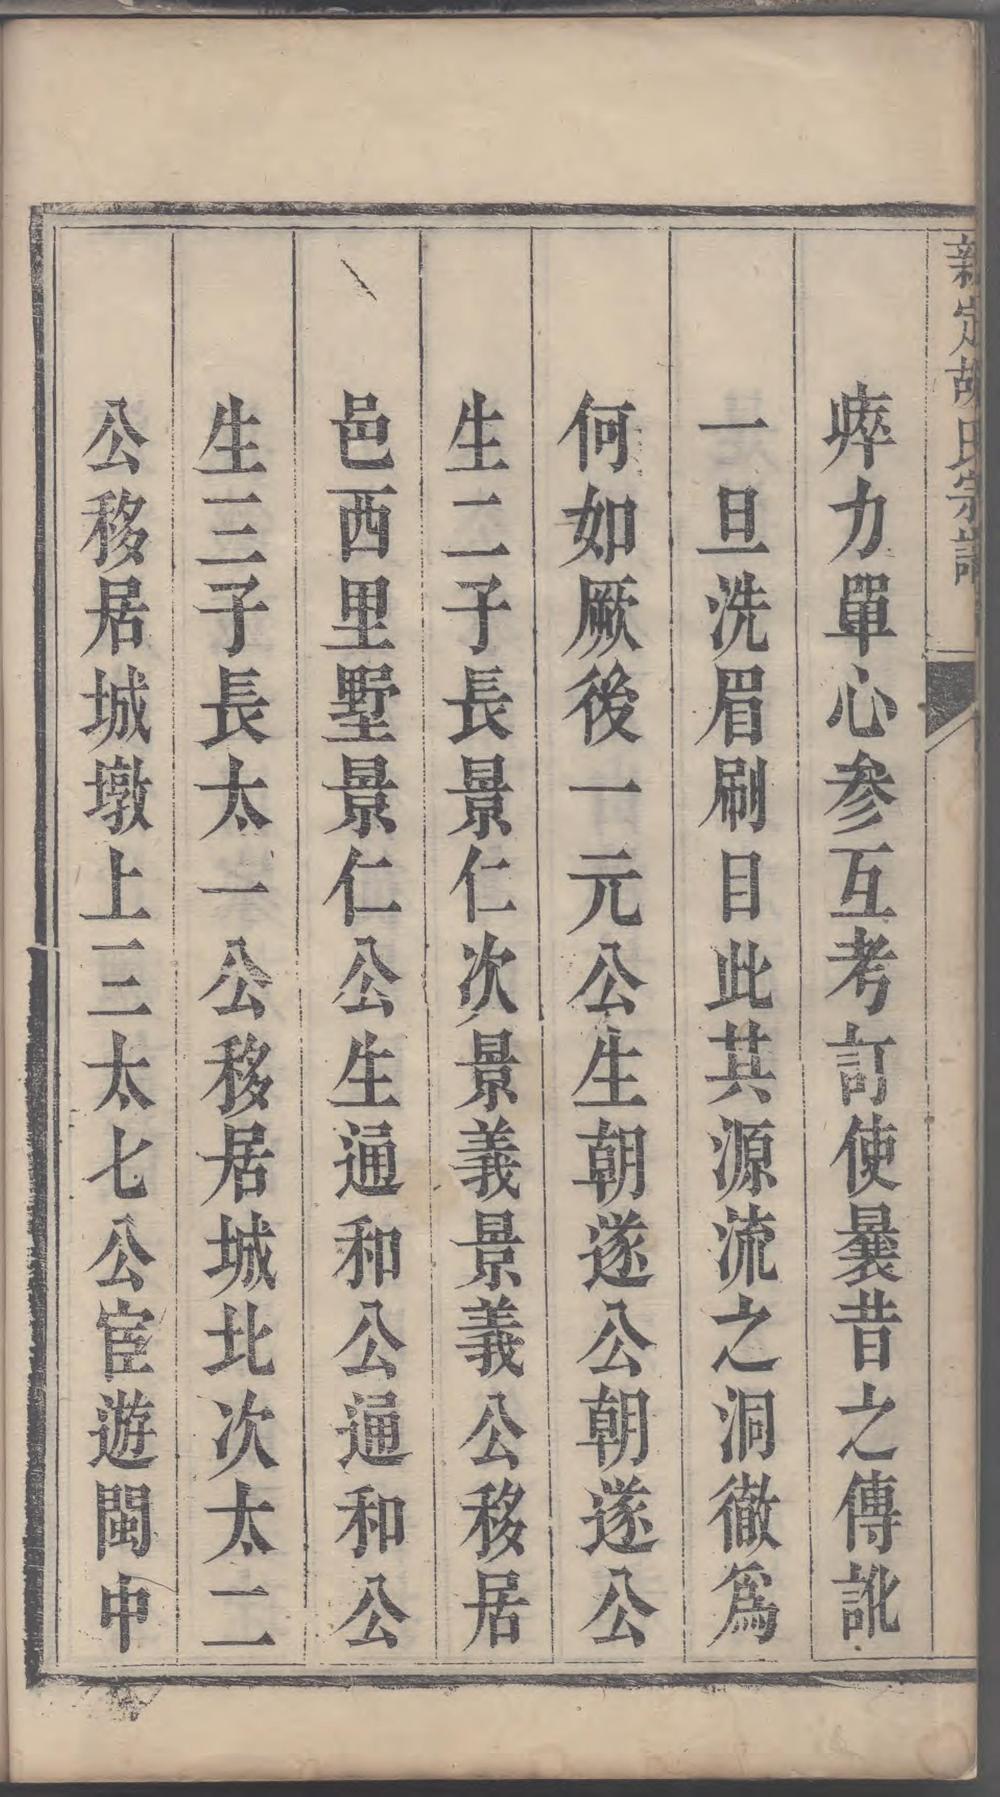 新定胡氏宗譜
瘁力單心參互考訂使曩昔之傳訛
一旦洗眉刷目此其源流之洞徹爲
何如厥後一元公生朝遂公朝遂公
生二子長景仁次景義景義公移居
邑西里墅景仁公生通和公通和公
生三子長太一公移居城北次太二
公移居城墩上三太七公宦遊閩中